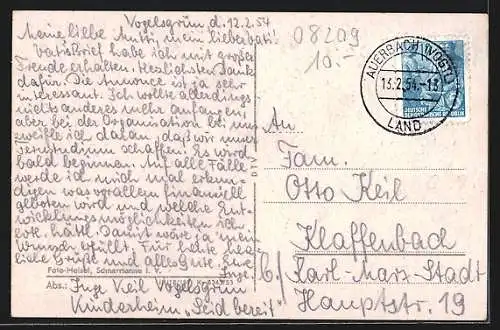 Vogelsgrün d. 12.2.54
Meine liebe Mutti, mein lieber Vati!
Vatis Brief habe ich mit großer
Freude erhalten. Herzlichsten Dank
dafür. Die Annonce ist ja sehr
interessant. Ich wollte allerdings
nichts anderes mehr anfangen,
aber bei der Organisation bei uns
zweifle ich daran, daß wir unser
Fernstudium schaffen. Es wird
bald beginnen. Auf alle Fälle
werde ich mich mal erkun-
digen was vorallem finanziell
geboten wird und welche Ent-
wicklungsmöglichkeiten ich
hätte. Damit wäre ja mein
Wunsch erfüllt. Für heute
liebe Grüße und alles Gute Eure
Inge.
Foto-Heisel, Schnarrtanne i. V.
Abs.: Inge Keil Vogelsgrün
Kinderheim „Seid bereit"
08209
10.-
AUERBACH (VOGTL)
13.2.54.-13
LAND
DEUTSCHE
DEMOKRATISCHE REPUBLIK
An
Fam.
Otto Keil
Klaffenbach
b/ Karl-Marx-Stadt
Hauptstr. 19